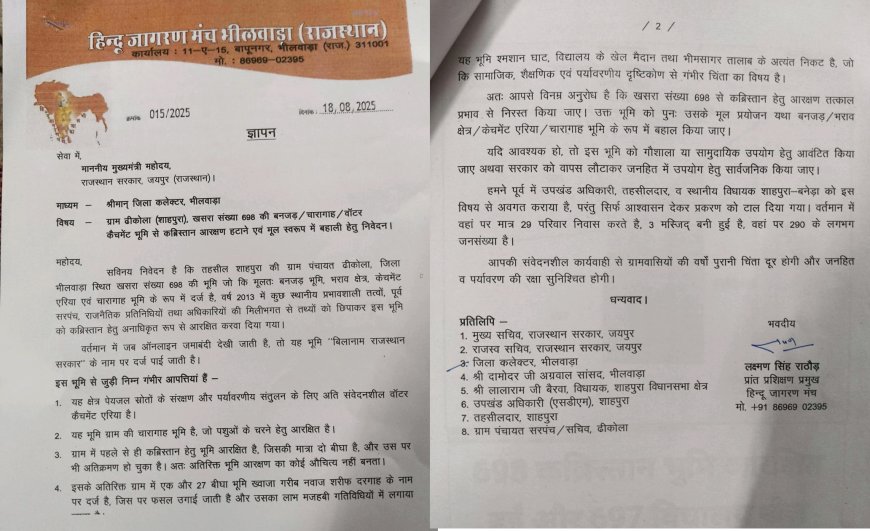 हिन्दू जागरण मंच भीलवाड़ा (राजस्थान)
कार्यालय : 11-ए-15, बापूनगर, भीलवाड़ा (राज.) 311001
मो. : 86969-02395
क्रमांक 015/2025
दिनांक : 18.08.2025
ज्ञापन
सेवा में,
माननीय मुख्यमंत्री महोदय,
राजस्थान सरकार, जयपुर (राजस्थान)।
माध्यम – श्रीमान् जिला कलेक्टर, भीलवाड़ा
विषय – ग्राम ढीकोला (शाहपुरा), खसरा संख्या 698 की बनजड़/चारागाह/वॉटर
कैचमेंट भूमि से कब्रिस्तान आरक्षण हटाने एवं मूल स्वरूप में बहाली हेतु निवेदन।
महोदय,
सविनय निवेदन है कि तहसील शाहपुरा की ग्राम पंचायत ढीकोला, जिला
भीलवाड़ा स्थित खसरा संख्या 698 की भूमि जो कि मूलतः बनजड़ भूमि, भराव क्षेत्र, केचमेंट
एरिया एवं चारागाह भूमि के रूप में दर्ज है, वर्ष 2013 में कुछ स्थानीय प्रभावशाली तत्वों, पूर्व
सरपंच, राजनैतिक प्रतिनिधियों तथा अधिकारियों की मिलीभगत से तथ्यों को छिपाकर इस भूमि
को कब्रिस्तान हेतु अनाधिकृत रूप से आरक्षित करवा दिया गया।
वर्तमान में जब ऑनलाइन जमाबंदी देखी जाती है, तो यह भूमि "बिलानाम राजस्थान
सरकार" के नाम पर दर्ज पाई जाती है।
इस भूमि से जुड़ी निम्न गंभीर आपत्तियां हैं –
1. यह क्षेत्र पेयजल स्रोतों के संरक्षण और पर्यावरणीय संतुलन के लिए अति संवेदनशील वॉटर
कैचमेंट एरिया है।
2. यह भूमि ग्राम की चारागाह भूमि है, जो पशुओं के चरने हेतु आरक्षित है।
3. ग्राम में पहले से ही कब्रिस्तान हेतु भूमि आरक्षित है, जिसकी मात्रा दो बीघा है, और उस पर
भी अतिक्रमण हो चुका है। अतः अतिरिक्त भूमि आरक्षण का कोई औचित्य नहीं बनता।
4. इसके अतिरिक्त ग्राम में एक और 27 बीघा भूमि ख्वाजा गरीब नवाज शरीफ दरगाह के नाम
पर दर्ज है, जिस पर फसल उगाई जाती है और उसका लाभ मजहबी गतिविधियों में लगाया
/ 2 /
यह भूमि श्मशान घाट, विद्यालय के खेल मैदान तथा भीमसागर तालाब के अत्यंत निकट है, जो
कि सामाजिक, शैक्षणिक एवं पर्यावरणीय दृष्टिकोण से गंभीर चिंता का विषय है।
अतः आपसे विनम्र अनुरोध है कि खसरा संख्या 698 से कब्रिस्तान हेतु आरक्षण तत्काल
प्रभाव से निरस्त किया जाए। उक्त भूमि को पुनः उसके मूल प्रयोजन यथा बनजड़/भराव
क्षेत्र/केचमेंट एरिया/चारागाह भूमि के रूप में बहाल किया जाए।
यदि आवश्यक हो, तो इस भूमि को गौशाला या सामुदायिक उपयोग हेतु आवंटित किया
जाए अथवा सरकार को वापस लौटाकर जनहित में उपयोग हेतु सार्वजनिक किया जाए।
हमने पूर्व में उपखंड अधिकारी, तहसीलदार, व स्थानीय विधायक शाहपुरा–बनेड़ा को इस
विषय से अवगत कराया है, परंतु सिर्फ आश्वासन देकर प्रकरण को टाल दिया गया। वर्तमान में
वहां पर मात्र 29 परिवार निवास करते है, 3 मस्जिद बनी हुई है, वहां पर 290 के लगभग
जनसंख्या है।
आपकी संवेदनशील कार्यवाही से ग्रामवासियों की वर्षों पुरानी चिंता दूर होगी और जनहित
व पर्यावरण की रक्षा सुनिश्चित होगी।
धन्यवाद।
प्रतिलिपि –
1. मुख्य सचिव, राजस्थान सरकार, जयपुर
2. राजस्व सचिव, राजस्थान सरकार, जयपुर
3. जिला कलेक्टर, भीलवाड़ा
4. श्री दामोदर जी अग्रवाल सांसद, भीलवाड़ा
5. श्री लालाराम जी बैरवा, विधायक, शाहपुरा विधानसभा क्षेत्र
6. उपखण्ड अधिकारी (एसडीएम), शाहपुरा
7. तहसीलदार, शाहपुरा
8. ग्राम पंचायत सरपंच/सचिव, ढीकोला
भवदीय
लक्ष्मण सिंह राठौड़
प्रांत प्रशिक्षण प्रमुख
हिन्दू जागरण मंच
मो. +91 86969 02395